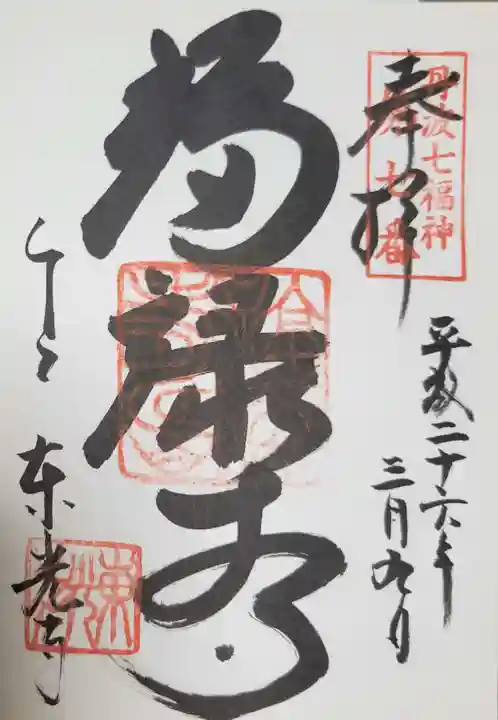 奉拝
丹波七福神
第七番
平成二十六年
三月九日
福禄寿
東光寺
東光